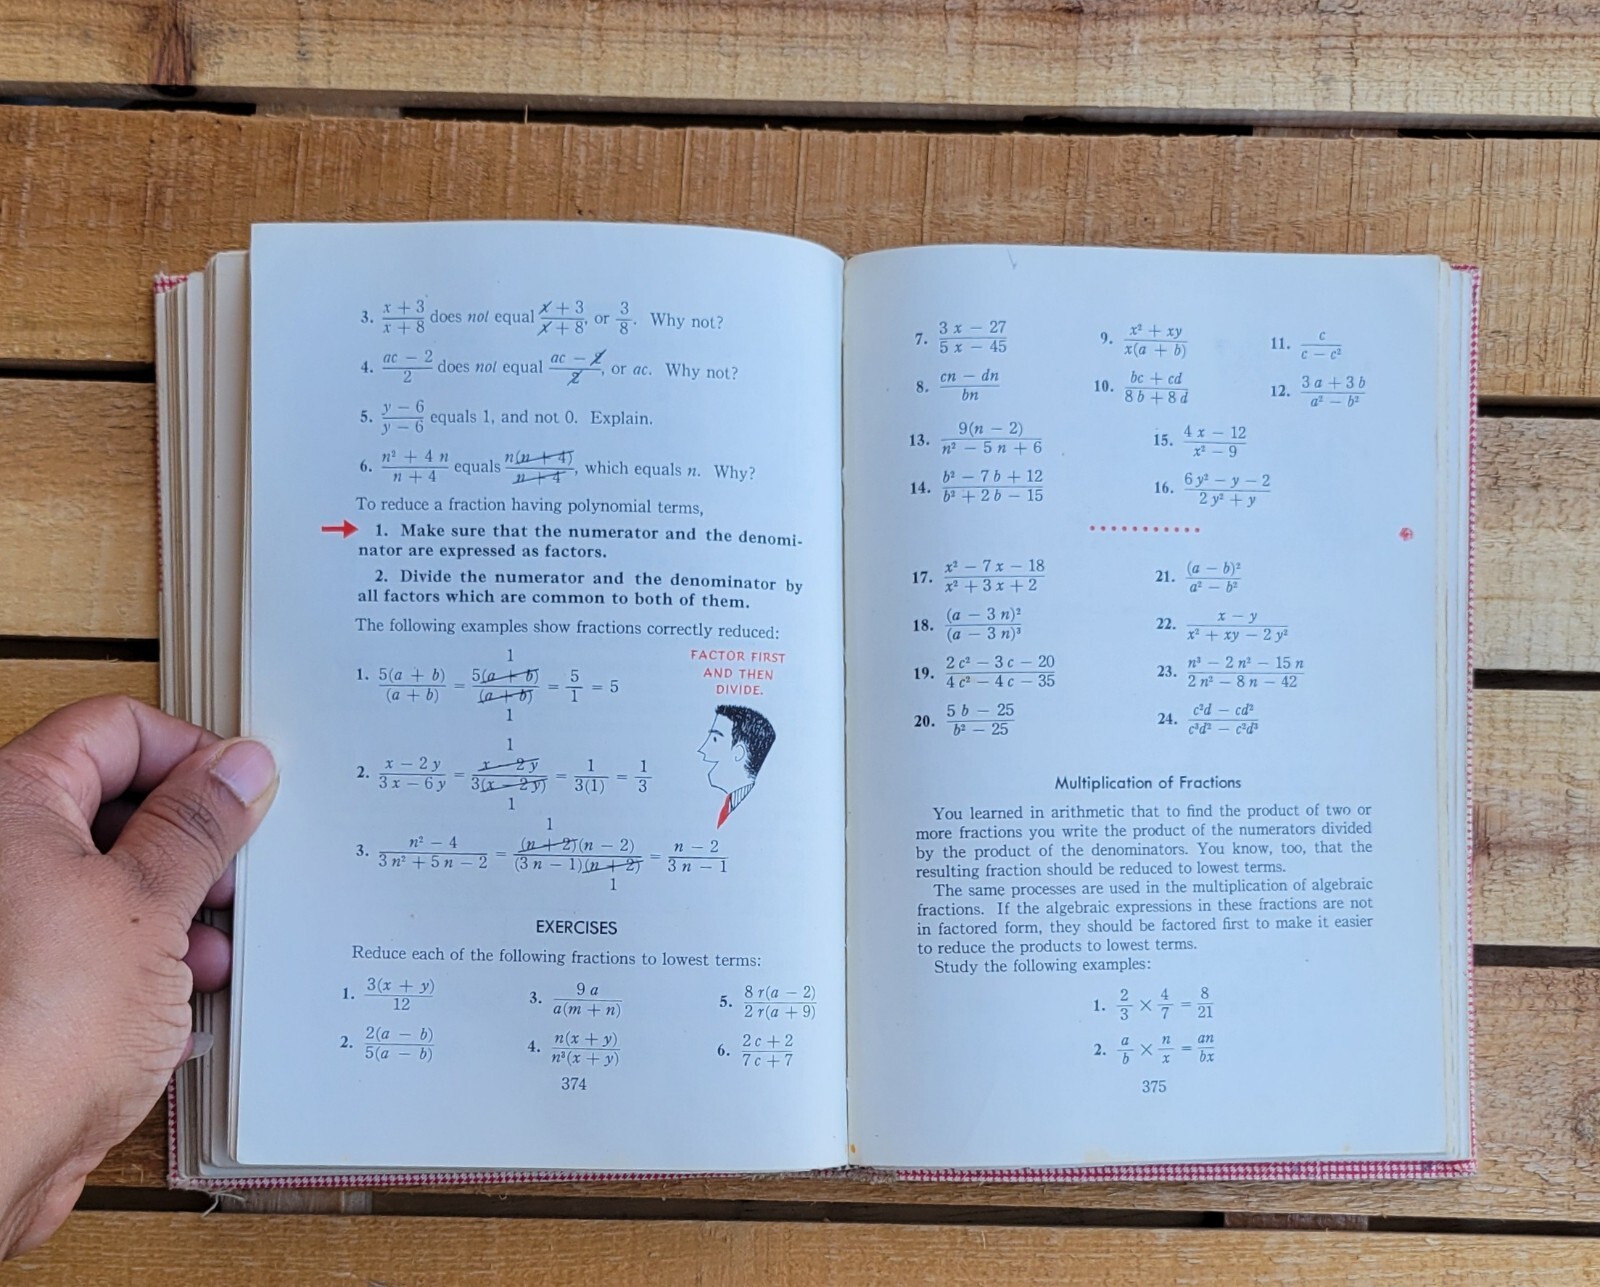 3. (x + 3)/(x + 8) does not equal (x̸ + 3)/(x̸ + 8), or 3/8. Why not?
4. (ac − 2)/2 does not equal (ac − 2̸)/2̸, or ac. Why not?
5. (y − 6)/(y − 6) equals 1, and not 0. Explain.
6. (n² + 4 n)/(n + 4) equals n(n + 4)/(n + 4), which equals n. Why?
To reduce a fraction having polynomial terms,
1. Make sure that the numerator and the denomi-
nator are expressed as factors.
2. Divide the numerator and the denominator by
all factors which are common to both of them.
The following examples show fractions correctly reduced:
FACTOR FIRST
AND THEN
DIVIDE.
1
1. 5(a + b)/(a + b) = 5(a + b)/(a + b) = 5/1 = 5
1
1
2. (x − 2 y)/(3 x − 6 y) = (x − 2 y)/3(x − 2 y) = 1/3(1) = 1/3
1
1
3. (n² − 4)/(3 n² + 5 n − 2) = (n + 2)(n − 2)/(3 n − 1)(n + 2) = (n − 2)/(3 n − 1)
1
EXERCISES
Reduce each of the following fractions to lowest terms:
1. 3(x + y)/12 3. 9 a/a(m + n) 5. 8 r(a − 2)/2 r(a + 9)
2. 2(a − b)/5(a − b) 4. n(x + y)/n³(x + y) 6. (2 c + 2)/(7 c + 7)
374
7. (3 x − 27)/(5 x − 45) 9. (x² + xy)/x(a + b) 11. c/(c − c²)
8. (cn − dn)/bn 10. (bc + cd)/(8 b + 8 d) 12. (3 a + 3 b)/(a² − b²)
13. 9(n − 2)/(n² − 5 n + 6) 15. (4 x − 12)/(x² − 9)
14. (b² − 7 b + 12)/(b² + 2 b − 15) 16. (6 y² − y − 2)/(2 y² + y)
17. (x² − 7 x − 18)/(x² + 3 x + 2) 21. (a − b)²/(a² − b²)
18. (a − 3 n)²/(a − 3 n)³ 22. (x − y)/(x² + xy − 2 y²)
19. (2 c² − 3 c − 20)/(4 c² − 4 c − 35) 23. (n³ − 2 n² − 15 n)/(2 n² − 8 n − 42)
20. (5 b − 25)/(b² − 25) 24. (c²d − cd²)/(c³d² − c²d³)
Multiplication of Fractions
You learned in arithmetic that to find the product of two or
more fractions you write the product of the numerators divided
by the product of the denominators. You know, too, that the
resulting fraction should be reduced to lowest terms.
The same processes are used in the multiplication of algebraic
fractions. If the algebraic expressions in these fractions are not
in factored form, they should be factored first to make it easier
to reduce the products to lowest terms.
Study the following examples:
1. 2/3 × 4/7 = 8/21
2. a/b × n/x = an/bx
375